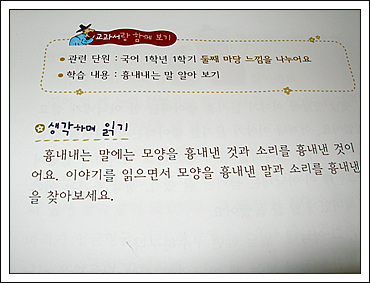 교과서랑 함께 보기
• 관련 단원 : 국어 1학년 1학기 둘째 마당 느낌을 나누어요
• 학습 내용 : 흉내내는 말 알아 보기
생각하며 읽기
흉내내는 말에는 모양을 흉내낸 것과 소리를 흉내낸 것이
어요. 이야기를 읽으면서 모양을 흉내낸 말과 소리를 흉내낸
을 찾아보세요.